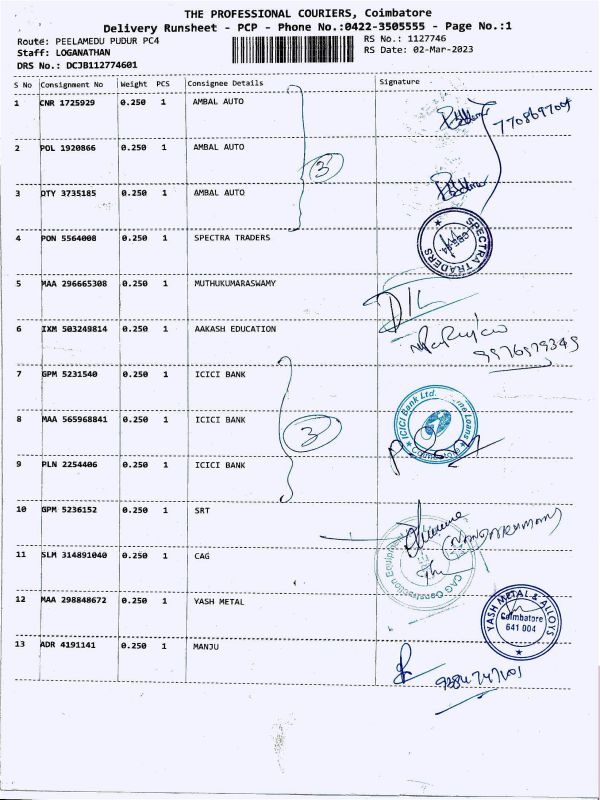 THE PROFESSIONAL COURIERS, Coimbatore
Delivery Runsheet - PCP - Phone No.:0422-3505555 - Page No.:1
Route: PEELAMEDU PUDUR PC4
RS No.: 1127746
Staff: LOGANATHAN
RS Date: 02-Mar-2023
DRS No.: DCJB112774601
S No Consignment No Weight PCS Consignee Details Signature
1 CNR 1725929 0.250 1 AMBAL AUTO
2 POL 1920866 0.250 1 AMBAL AUTO
3
3 OTY 3735185 0.250 1 AMBAL AUTO
4 PON 5564008 0.250 1 SPECTRA TRADERS
SPECTRA TRADERS
5 MAA 296665308 0.250 1 MUTHUKUMARASWAMY
6 IXM 503249814 0.250 1 AAKASH EDUCATION
9976979345
7 GPM 5231540 0.250 1 ICICI BANK
8 MAA 565968841 0.250 1 ICICI BANK
3
ICICI Bank Ltd.
9 PLN 2254406 0.250 1 ICICI BANK
10 GPM 5236152 0.250 1 SRT
11 SLM 314891040 0.250 1 CAG
CAG Construction Equipment
12 MAA 298848672 0.250 1 YASH METAL
YASH METAL & ALLOYS
Coimbatore
641 004
13 ADR 4191141 0.250 1 MANJU